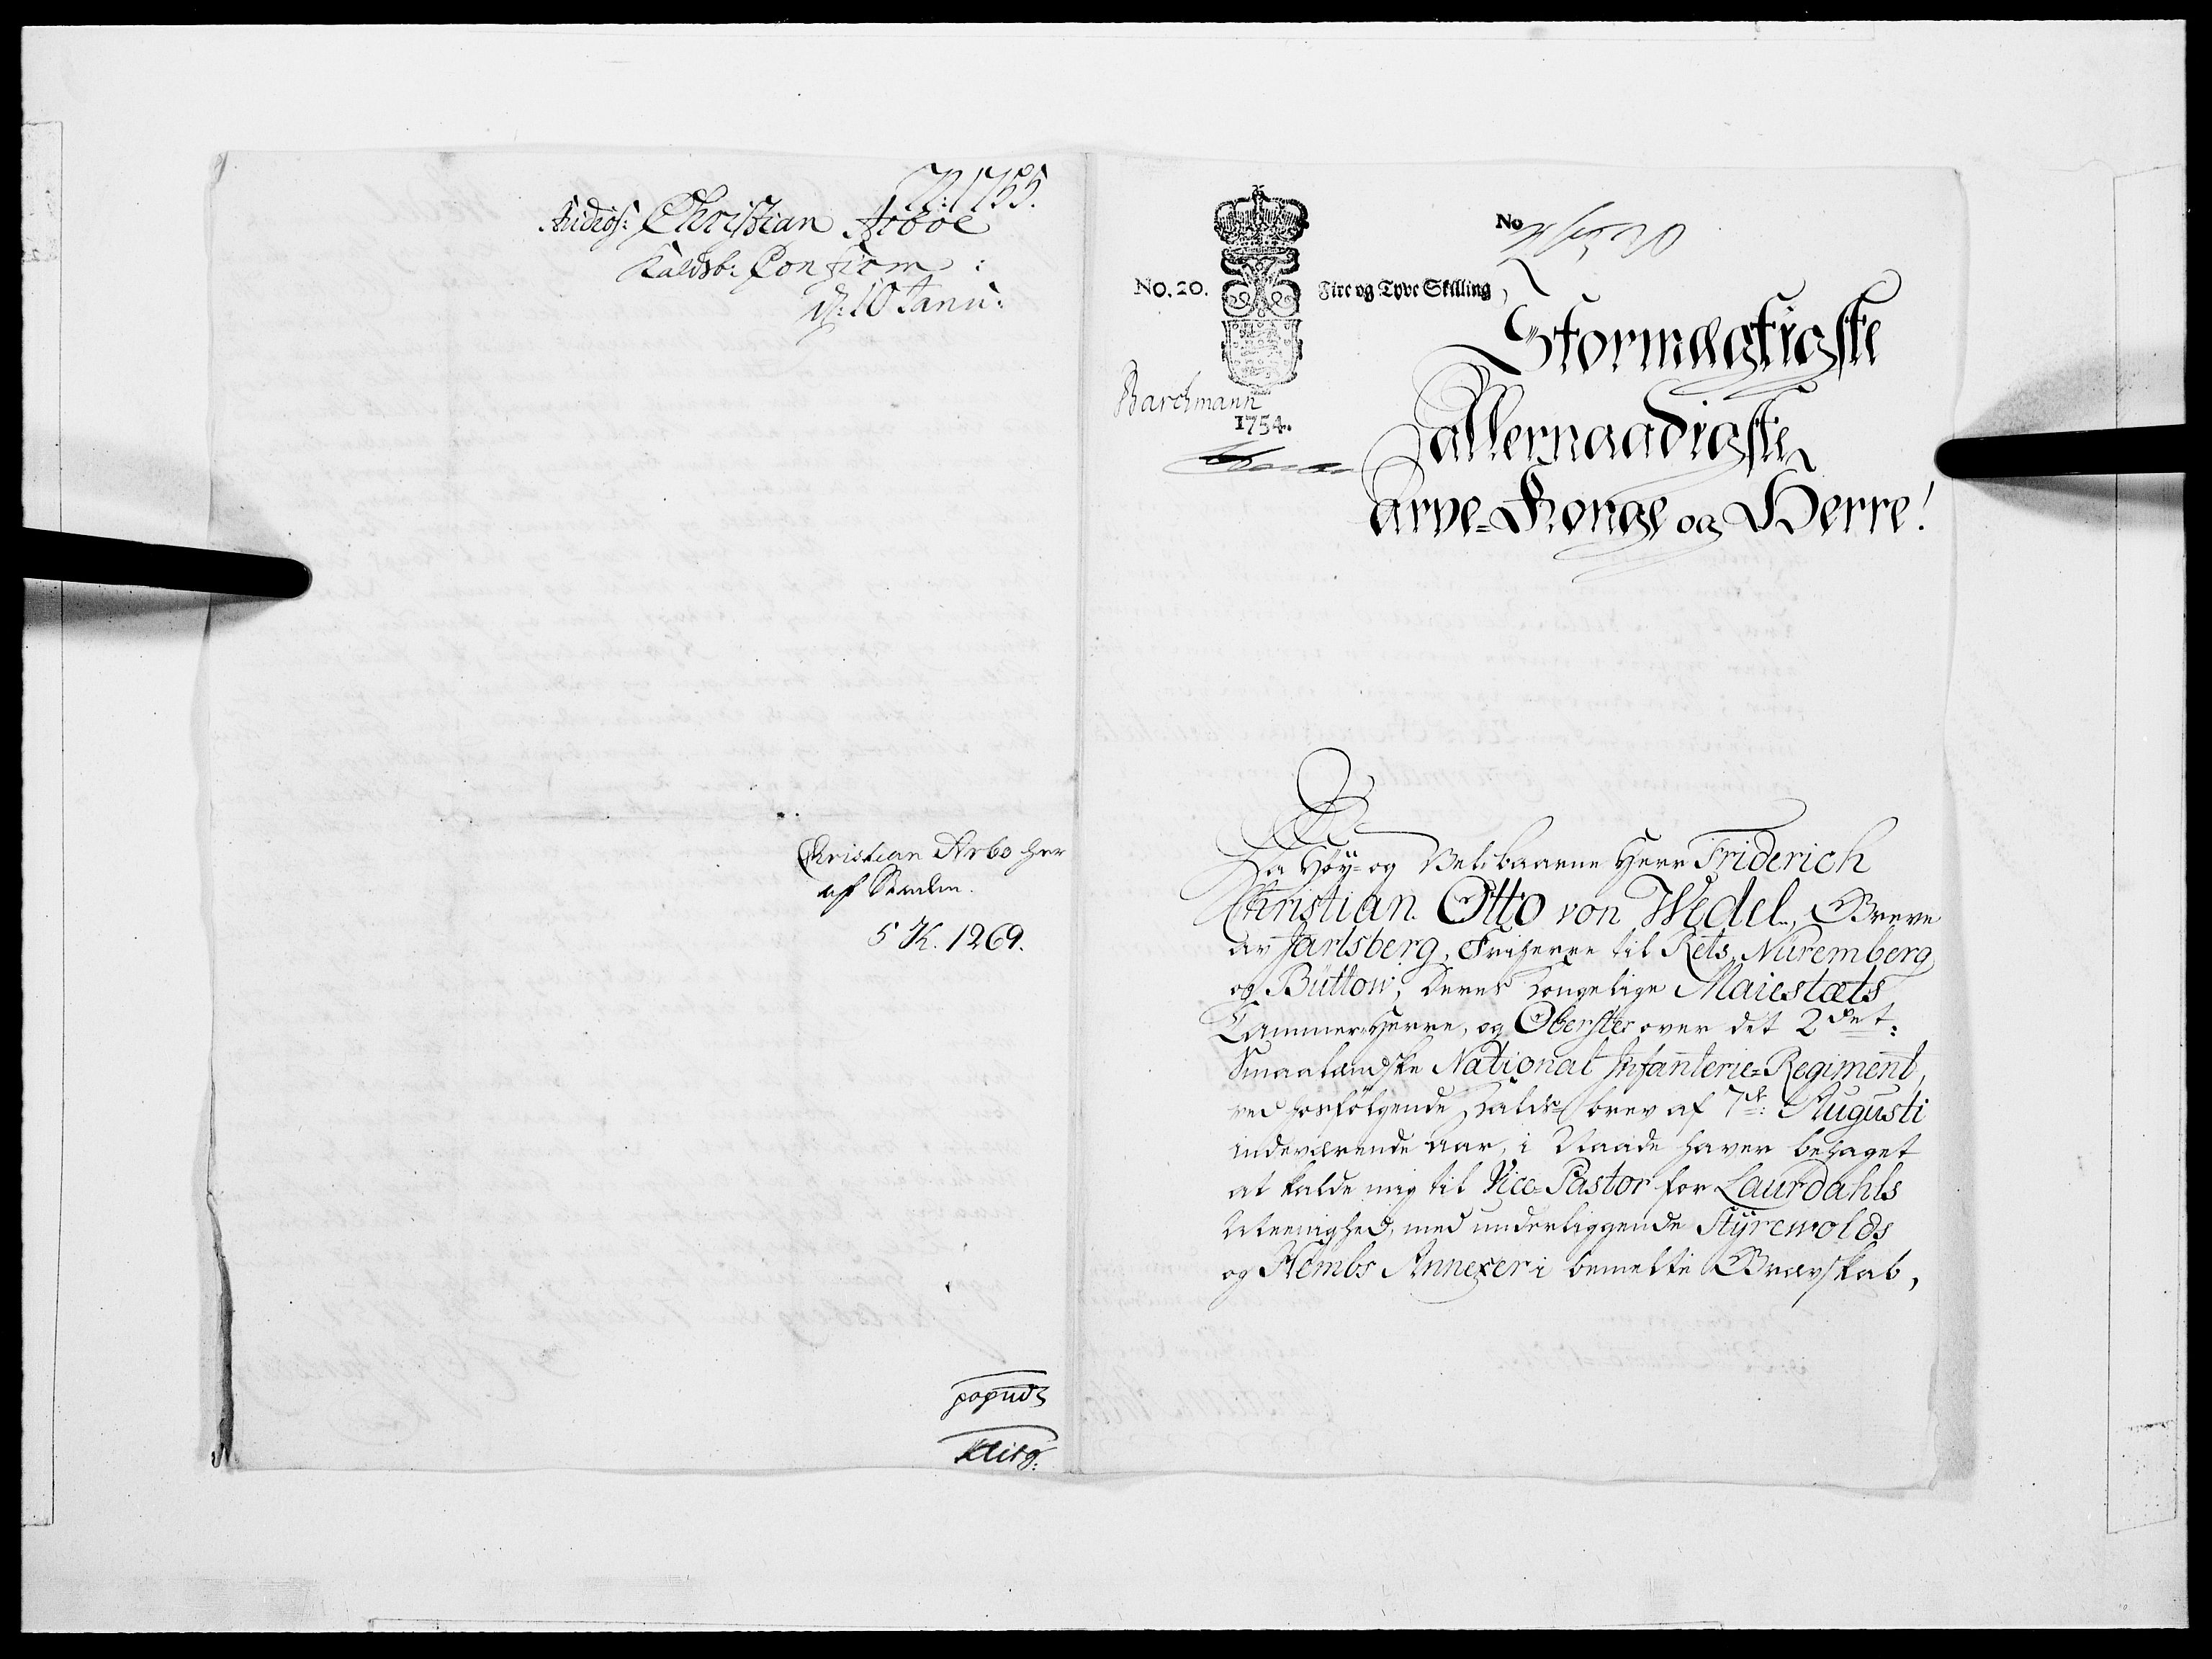 N: 1755.
Christian Arboe
Kaldsb: Confirm:
d: 10 Janu:
Christian Arbo her
af Stæden.
5 K. 1269.
No
No. 20.
Fire og Tyve Skilling
Barchmann
1754.
Stormægtigste
Allernaadigste
Arve-Konge og Herre!
Da Høy- og Velbaarne Herr Friderich
Christian Otto von Wedel, Greve
av Jarlsberg, Friherre til Rets, Nuremberg
og Büttow, Deres Kongelige Maiestæts
Cammer-Herre, og Oberster over det 2det:
Smaalandske National Infanterie-Regiment,
ved hosfølgende Kalds-brev af 7de: Augusti
indeværende Aar, i Naade haver behaget
at kalde mig til Vice-Pastor for Laurdahls
Meenighed, med underliggende Styrewolds
og Hembs Annexer i bemelte Grevskab,